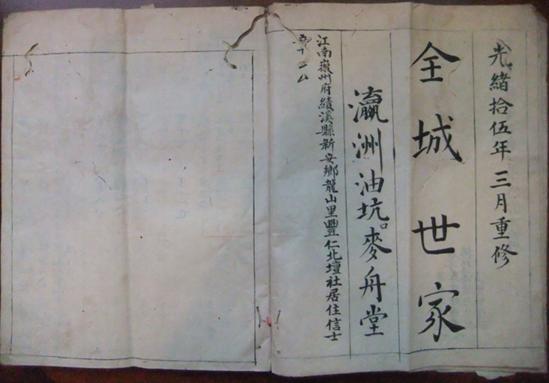 光緒拾伍年三月重修
全城世家
瀛洲油坑口麥舟堂
江南徽州府績溪縣新安鄉龍山里豐仁北壇社居住信士